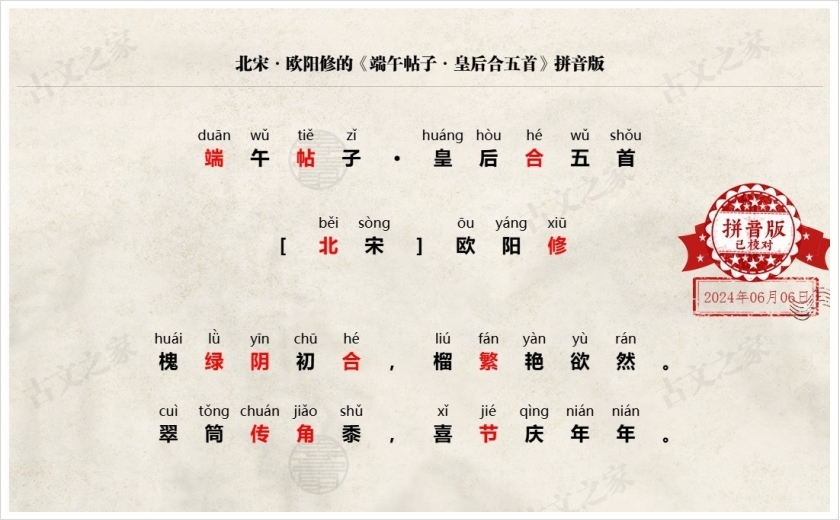 北宋·欧阳修的《端午帖子·皇后合五首》拼音版
duān wǔ tiě zǐ huáng hòu hé wǔ shǒu
端午帖子·皇后合五首
běi sòng ōu yáng xiū
[北宋]欧阳修
拼音版
已校对
2024年06月06日
huái lǜ yīn chū hé liú fán yàn yù rán
槐绿阴初合，榴繁艳欲然。
cuì tǒng chuán jiǎo shǔ xǐ jié qìng nián nián
翠筒传角黍，喜节庆年年。
古文之家
古文之家
古文之家
古文之家
古文之家
古文之家